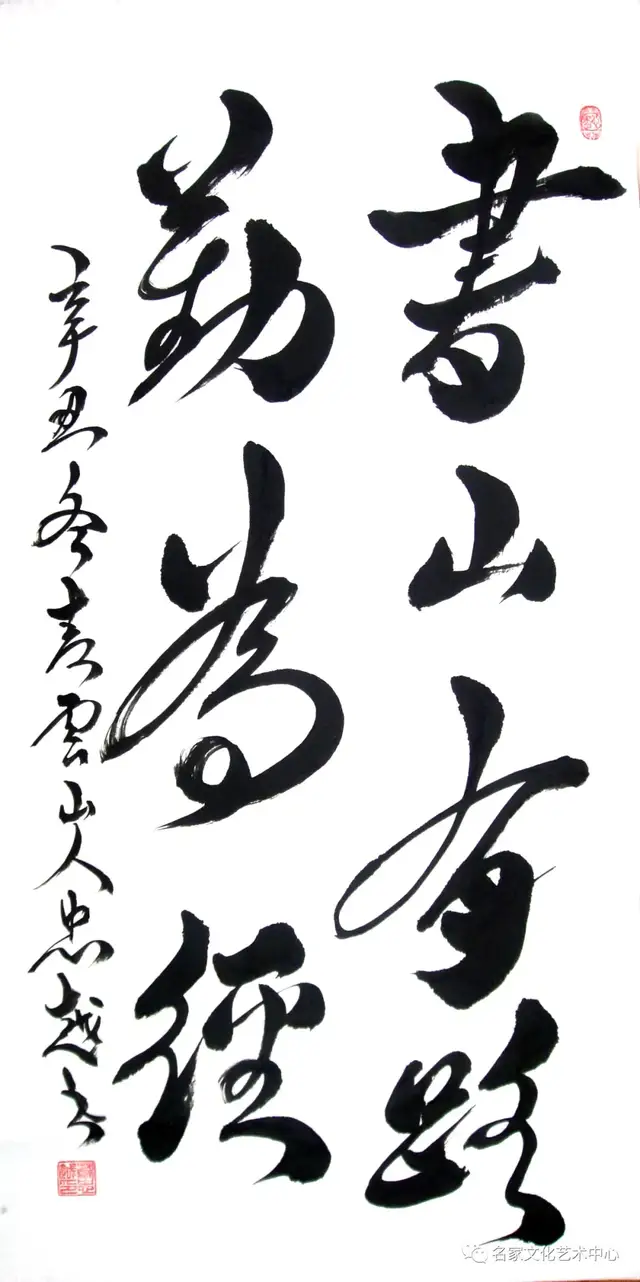 書山有路
勤為徑
辛丑冬青雲山人忠越书
名家文化艺术中心